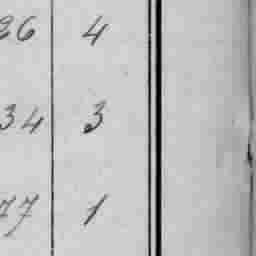 26 4
34 3
77 1